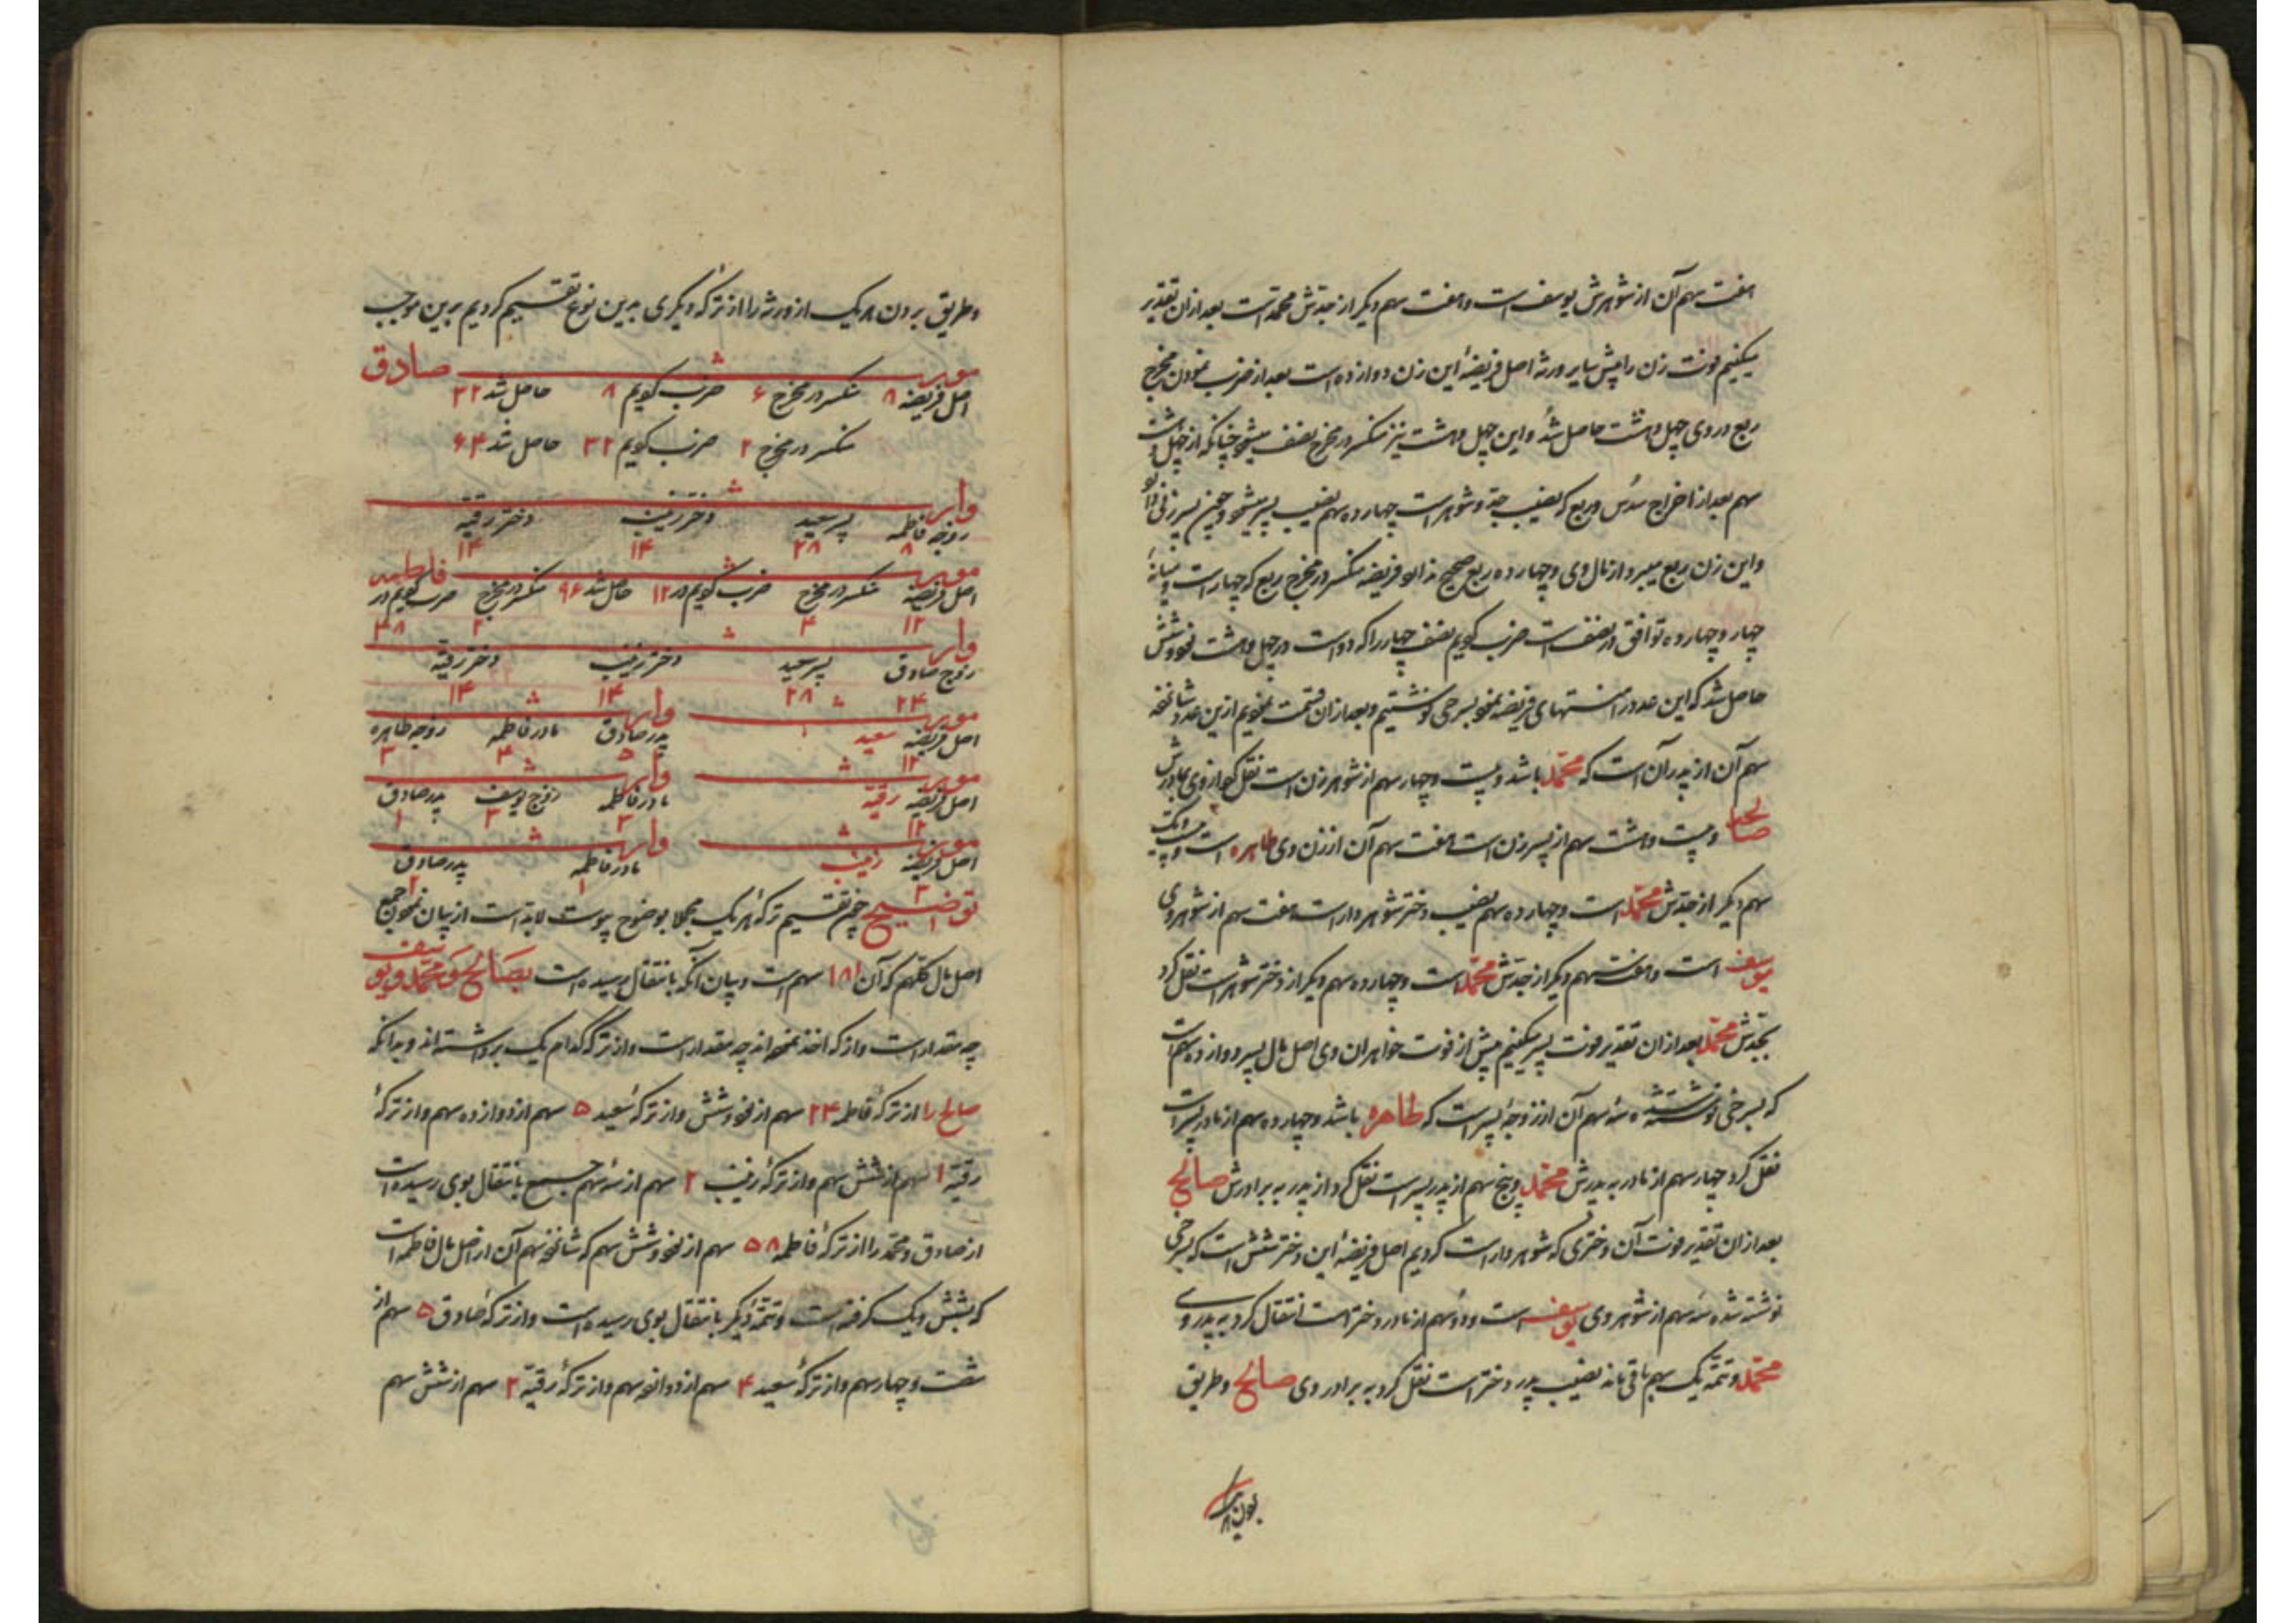 هفت سهم آن از شوهرش یوسف است و هفت سهم دیگر از جدش محمد است بعد از آن تقدیر
میکنیم فوت زن را پیش سایر ورثه اصل فریضهٔ این زن دوازده است بعد از ضرب نمودن مخرج
ربع در وی چهل و هشت حاصل شد و این چهل و هشت نیز منکسر در مخرج نصف میشود چنانکه از چهل و هشت
سهم بعد از اخراج سدس و ربع که نصیب جد و شوهر است چهارده سهم نصیب پسر میشود و چون پسر زنی دارد
و این زن ربع میبرد از مال وی و چهارده ربع صحیح ندارد فریضه منکسر در مخرج ربع که چهار است و میانهٔ
چهار و چهارده توافق در نصف است ضرب کردیم نصف چهار را که دو است در چهل و هشت نود و شش
حاصل شد که این عدد در منتهای فریضه بسرخی نوشتیم و بعد از آن قسمت نمودیم ازین عدد شانزده
سهم آن از پدر آن است که محمد باشد و بیست و چهار سهم از شوهر زن است نقل کرد از وی بمادرش
صالح و بیست و هشت سهم از پسر زن است هفت سهم آن از زن وی طاهره است و بیست و یک
سهم دیگر از جدش محمد است و چهارده سهم نصیب دختر شوهردار است هفت سهم از شوهر وی
یوسف است و هفت سهم دیگر از جدش محمد است و چهارده سهم دیگر از دختر شوهر است نقل کرد
بجدش محمد بعد از آن تقدیر فوت پسر میکنیم پیش از فوت خواهران وی اصل مال پسر دوازده سهم است
که بسرخی نوشته شده سه سهم آن از زوجهٔ پسر است که طاهره باشد و چهارده سهم از مادر پسر است
نقل کرد چهار سهم از مادر به پدرش محمد و پنج سهم از پدر پسر است نقل کرد از پدر به برادرش صالح
بعد از آن تقدیر فوت آن دختری که شوهردار است کردیم اصل فریضهٔ این دختر شش است که بسرخی
نوشته شده سه سهم از شوهر وی یوسف است و دو سهم از مادر دختر است انتقال کرد به پدر وی
محمد و تتمه یک سهم باقی مانده نصیب پدر دختر است نقل کرد به برادر وی صالح و طریق
و طریق بردن هر یک از ورثه را از ترکه دیگری بدین نوع تقسیم کردیم برین موجب
مورث صادق
اصل فریضه ۸ منکسر در مخرج ۶ ضرب کردیم ۸ حاصل شد ۳۲
منکسر در مخرج ۲ ضرب کردیم ۳۲ حاصل شد ۶۴
وارث
زوجه فاطمه ۸ پسر سعید ۲۸ دختر زینب ۱۴ دختر رقیه ۱۴
مورث فاطمه
اصل فریضه ۱۲ منکسر در مخرج ۴ ضرب کردیم در ۱۲ حاصل شد ۹۶ منکسر در مخرج ۲ ضرب کردیم در ۴۸
وارث
زوج صادق ۲۴ پسر سعید ۲۸ دختر زینب ۱۴ دختر رقیه ۱۴
مورث سعید اصل فریضه ۱۲ وارث پدر صادق ۵ مادر فاطمه ۴ زوجه طاهره ۳
مورث رقیه اصل فریضه ۱۲ وارث مادر فاطمه ۲ زوج یوسف ۳ پدر صادق ۱
مورث زینب اصل فریضه ۳ وارث مادر فاطمه ۱ پدر صادق ۲
توضیح چون تقسیم ترکهٔ هر یک مجملا بوضوح پیوست لابد است از بیان نمودن جمع
اصل مال کلهم که آن ۱۸۱ سهم است و بیان آنکه بانتقال رسیده است بصالح و محمد و یوسف
چه مقدار است و از که اخذ نموده‌اند چه مقدار است و از ترکه کدام یک برداشته‌اند و بدانکه
صالح را از ترکهٔ فاطمه ۲۴ سهم از نود و شش و از ترکهٔ سعید ۵ سهم از دوازده سهم و از ترکهٔ
رقیه ۱ سهم از شش سهم و از ترکهٔ زینب ۲ سهم از سه سهم جمیع بانتقال بوی رسیده است
از صادق و محمد را از ترکهٔ فاطمه ۵۸ سهم از نود و شش سهم که شانزده سهم آن از اصل مال فاطمه است
که بشش و یک گرفته است و تتمهٔ دیگر بانتقال بوی رسیده است و از ترکهٔ صادق ۵ سهم از
شصت و چهار سهم و از ترکهٔ سعید ۴ سهم از دوازده سهم و از ترکهٔ رقیه ۲ سهم از شش سهم